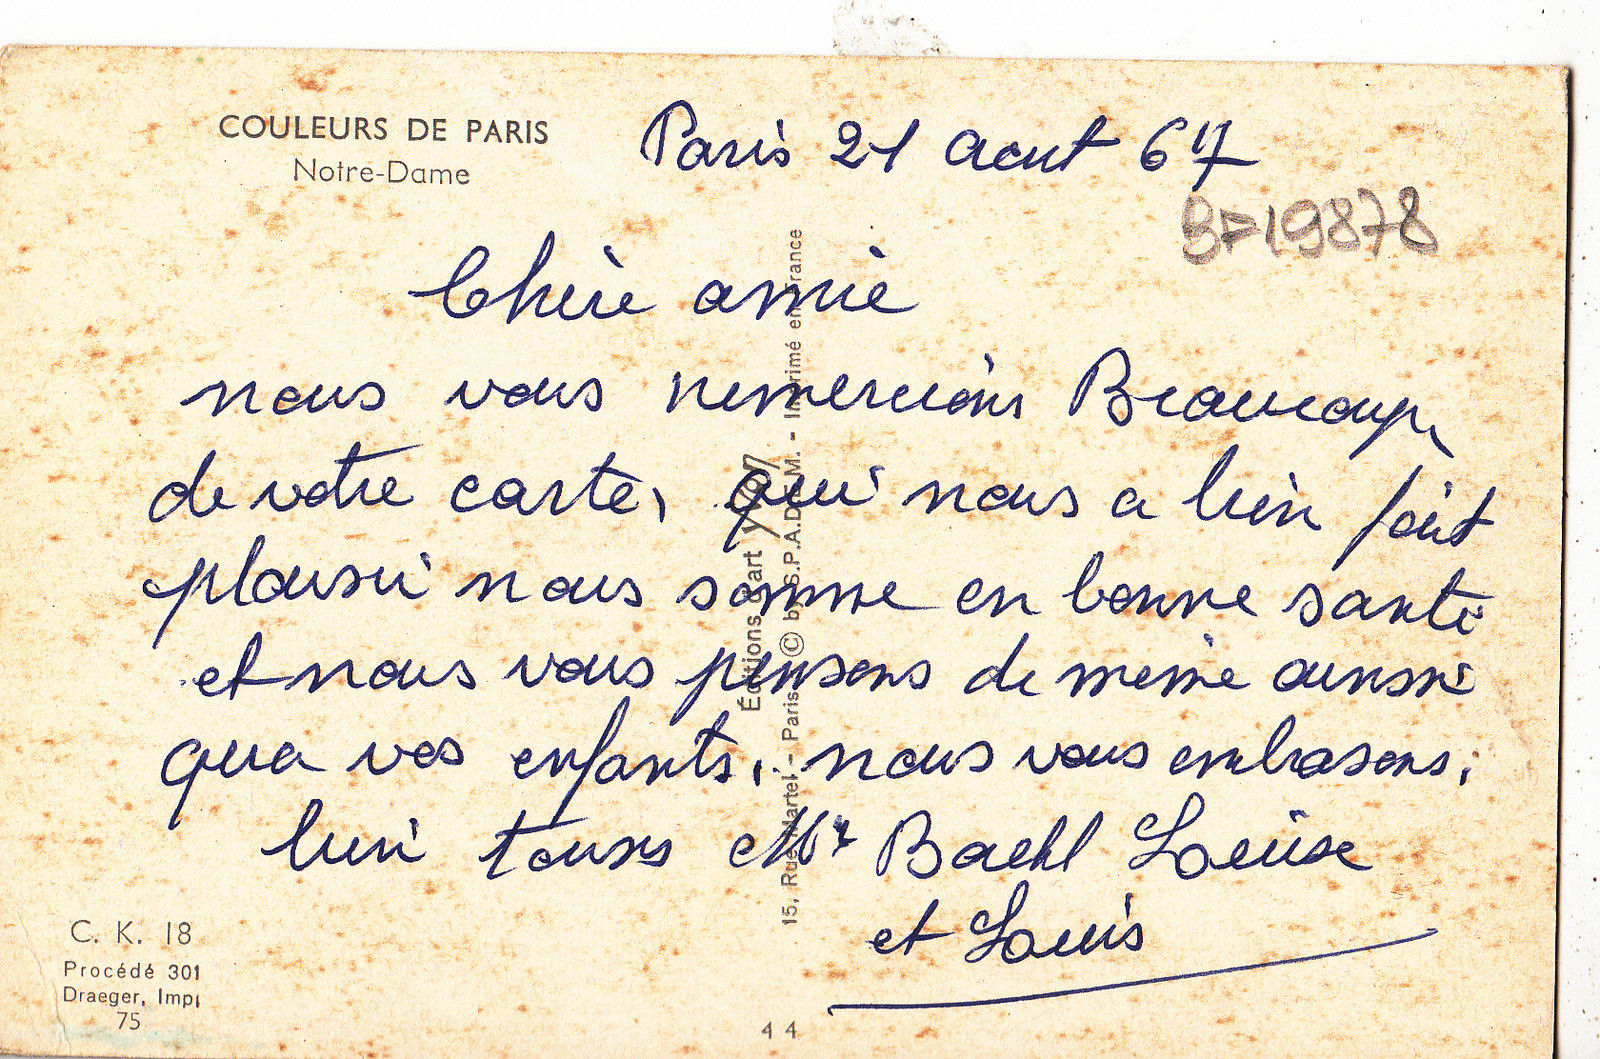 COULEURS DE PARIS
Notre-Dame
Paris 21 aout 67
9F19878
Chère amie
nous vous remercions Beaucoup
de votre carte, qui nous a bien fait
plaisir nous somme en bonne santé
et nous vous pensons de meme aussi
qua vos enfants, nous vous embrasons,
bien tous Mr Baehl Louise
et Louis
Éditions d'art Yvon
15, Rue Martel - Paris © by S.P.A.D.E.M. - Imprimé en France
C. K. 18
Procédé 301
Draeger, Imp.
75
44